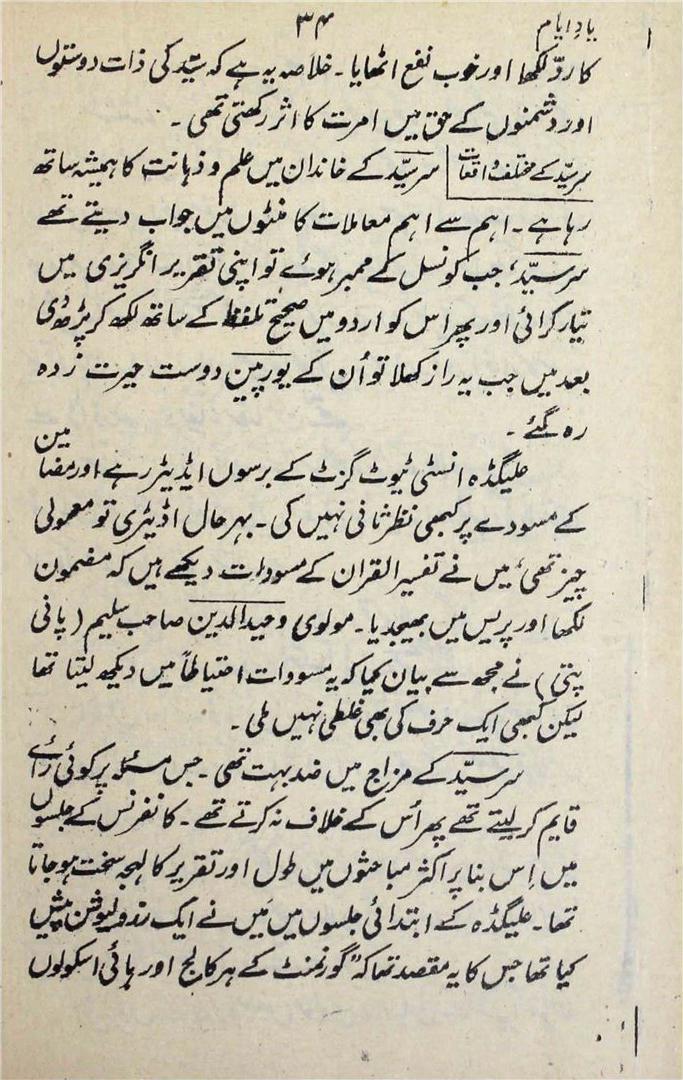 یادِ ایام ۳۴
کا ردّ لکھا اور خوب نفع اٹھایا ۔ خلاصہ یہ ہے کہ سیّد کی ذات دوستوں
اور دشمنوں کے حق میں امرت کا اثر رکھتی تھی ۔
سرسیّد کے مختلف واقعات سرسیّد کے خاندان میں علم و ذہانت کا ہمیشہ ساتھ
رہا ہے ۔ اہم سے اہم معاملات کا منٹوں میں جواب دیتے تھے
سرسیّد، جب کونسل کے ممبر ہوئے تو اپنی تقریر انگریزی میں
تیار کرائی اور پھر اس کو اردو میں صحیح تلفظ کے ساتھ لکھ کر پڑھ دی
بعد میں جب یہ راز کھلا تو اُن کے یورپین دوست حیرت زدہ
رہ گئے ۔
علیگڈہ انسٹی ٹیوٹ گزٹ کے برسوں ایڈیٹر رہے اور مضامین
کے مسودے پر کبھی نظر ثانی نہیں کی ۔ بہرحال اڈیٹری تو معمولی
چیز تھی، میں نے تفسیر القران کے مسودات دیکھے ہیں کہ مضمون
لکھا اور پریس میں بھیجدیا ۔ مولوی وحید الدین صاحب سلیم (پانی
پتی) نے مجھ سے بیان کیا کہ یہ مسودات احتیاطاً میں دیکھ لیتا تھا
لیکن کبھی ایک حرف کی بھی غلطی نہیں ملی ۔
سرسیّد کے مزاج میں ضد بہت تھی ۔ جس مسئلہ پر کوئی رائے
قایم کر لیتے تھے پھر اُس کے خلاف نہ کرتے تھے ۔ کانفرنس کے جلسوں
میں اِس بنا پر اکثر مباحثوں میں طول اور تقریر کا لہجہ سخت ہو جاتا
تھا ۔ علیگڈہ کے ابتدائی جلسوں میں مَیں نے ایک رزولیوشن پیش
کیا تھا جس کا یہ مقصد تھا کہ "گورنمنٹ کے ہر کالج اور ہائی اسکولوں